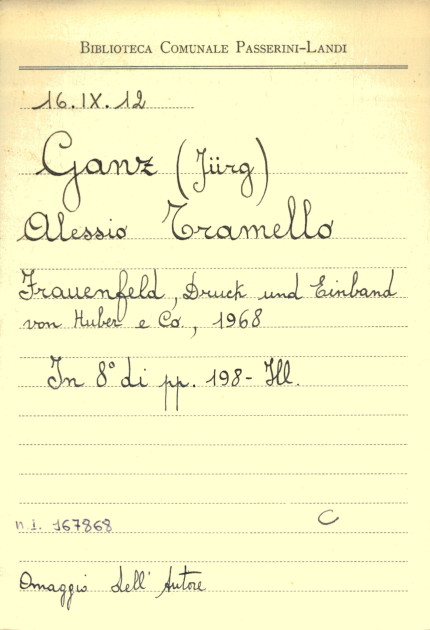 BIBLIOTECA COMUNALE PASSERINI-LANDI
16.IX.12
Ganz (Jürg)
Alessio Tramello
Frauenfeld, Druck und Einband
von Huber e Co, 1968
In 8° di pp. 198 - Ill.
C
n.I. 167868
Omaggio dell'Autore